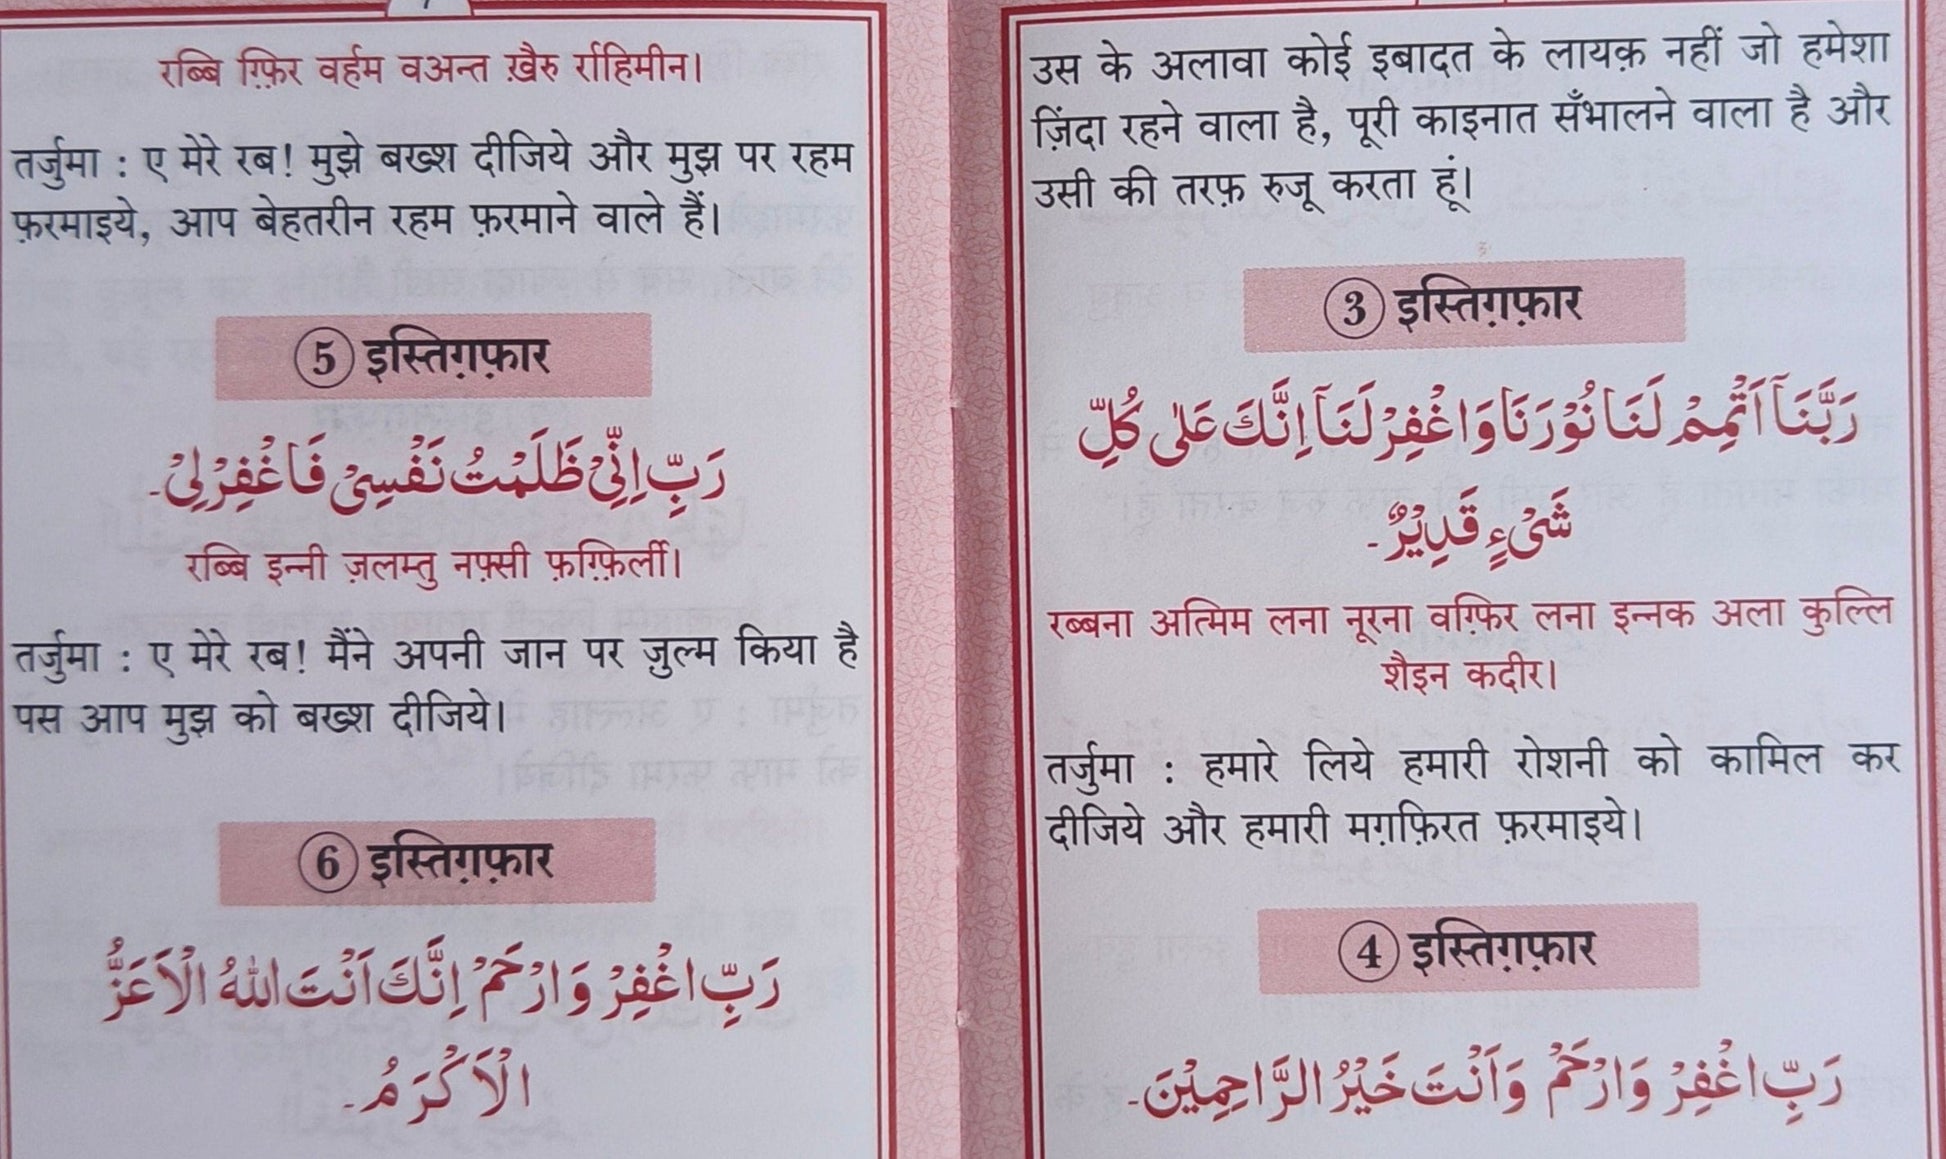 उस के अलावा कोई इबादत के लायक़ नहीं जो हमेशा
ज़िंदा रहने वाला है, पूरी काइनात सँभालने वाला है और
उसी की तरफ़ रुजू करता हूं।
③ इस्तिग़फ़ार
رَبَّنَآ اَتْمِمْ لَنَا نُوْرَنَا وَاغْفِرْ لَنَآ اِنَّكَ عَلٰى كُلِّ
شَیْءٍ قَدِيْرٌ۔
रब्बना अत्मिम लना नूरना वग़्फ़िर लना इन्नक अला कुल्लि
शैइन कदीर।
तर्जुमा : हमारे लिये हमारी रोशनी को कामिल कर
दीजिये और हमारी मग़फ़िरत फ़रमाइये।
④ इस्तिग़फ़ार
رَبِّ اغْفِرْ وَارْحَمْ وَاَنْتَ خَيْرُ الرَّاحِمِيْنَ۔
रब्बि ग़्फ़िर वर्हम वअन्त ख़ैरु र्राहिमीन।
तर्जुमा : ए मेरे रब! मुझे बख्श दीजिये और मुझ पर रहम
फ़रमाइये, आप बेहतरीन रहम फ़रमाने वाले हैं।
⑤ इस्तिग़फ़ार
رَبِّ اِنِّیْ ظَلَمْتُ نَفْسِیْ فَاغْفِرْلِیْ۔
रब्बि इन्नी ज़लम्तु नफ़्सी फ़ग़्फ़िर्ली।
तर्जुमा : ए मेरे रब! मैंने अपनी जान पर ज़ुल्म किया है
पस आप मुझ को बख्श दीजिये।
⑥ इस्तिग़फ़ार
رَبِّ اغْفِرْ وَارْحَمْ اِنَّكَ اَنْتَ اللّٰهُ الْاَعَزُّ
الْاَكْرَمُ۔